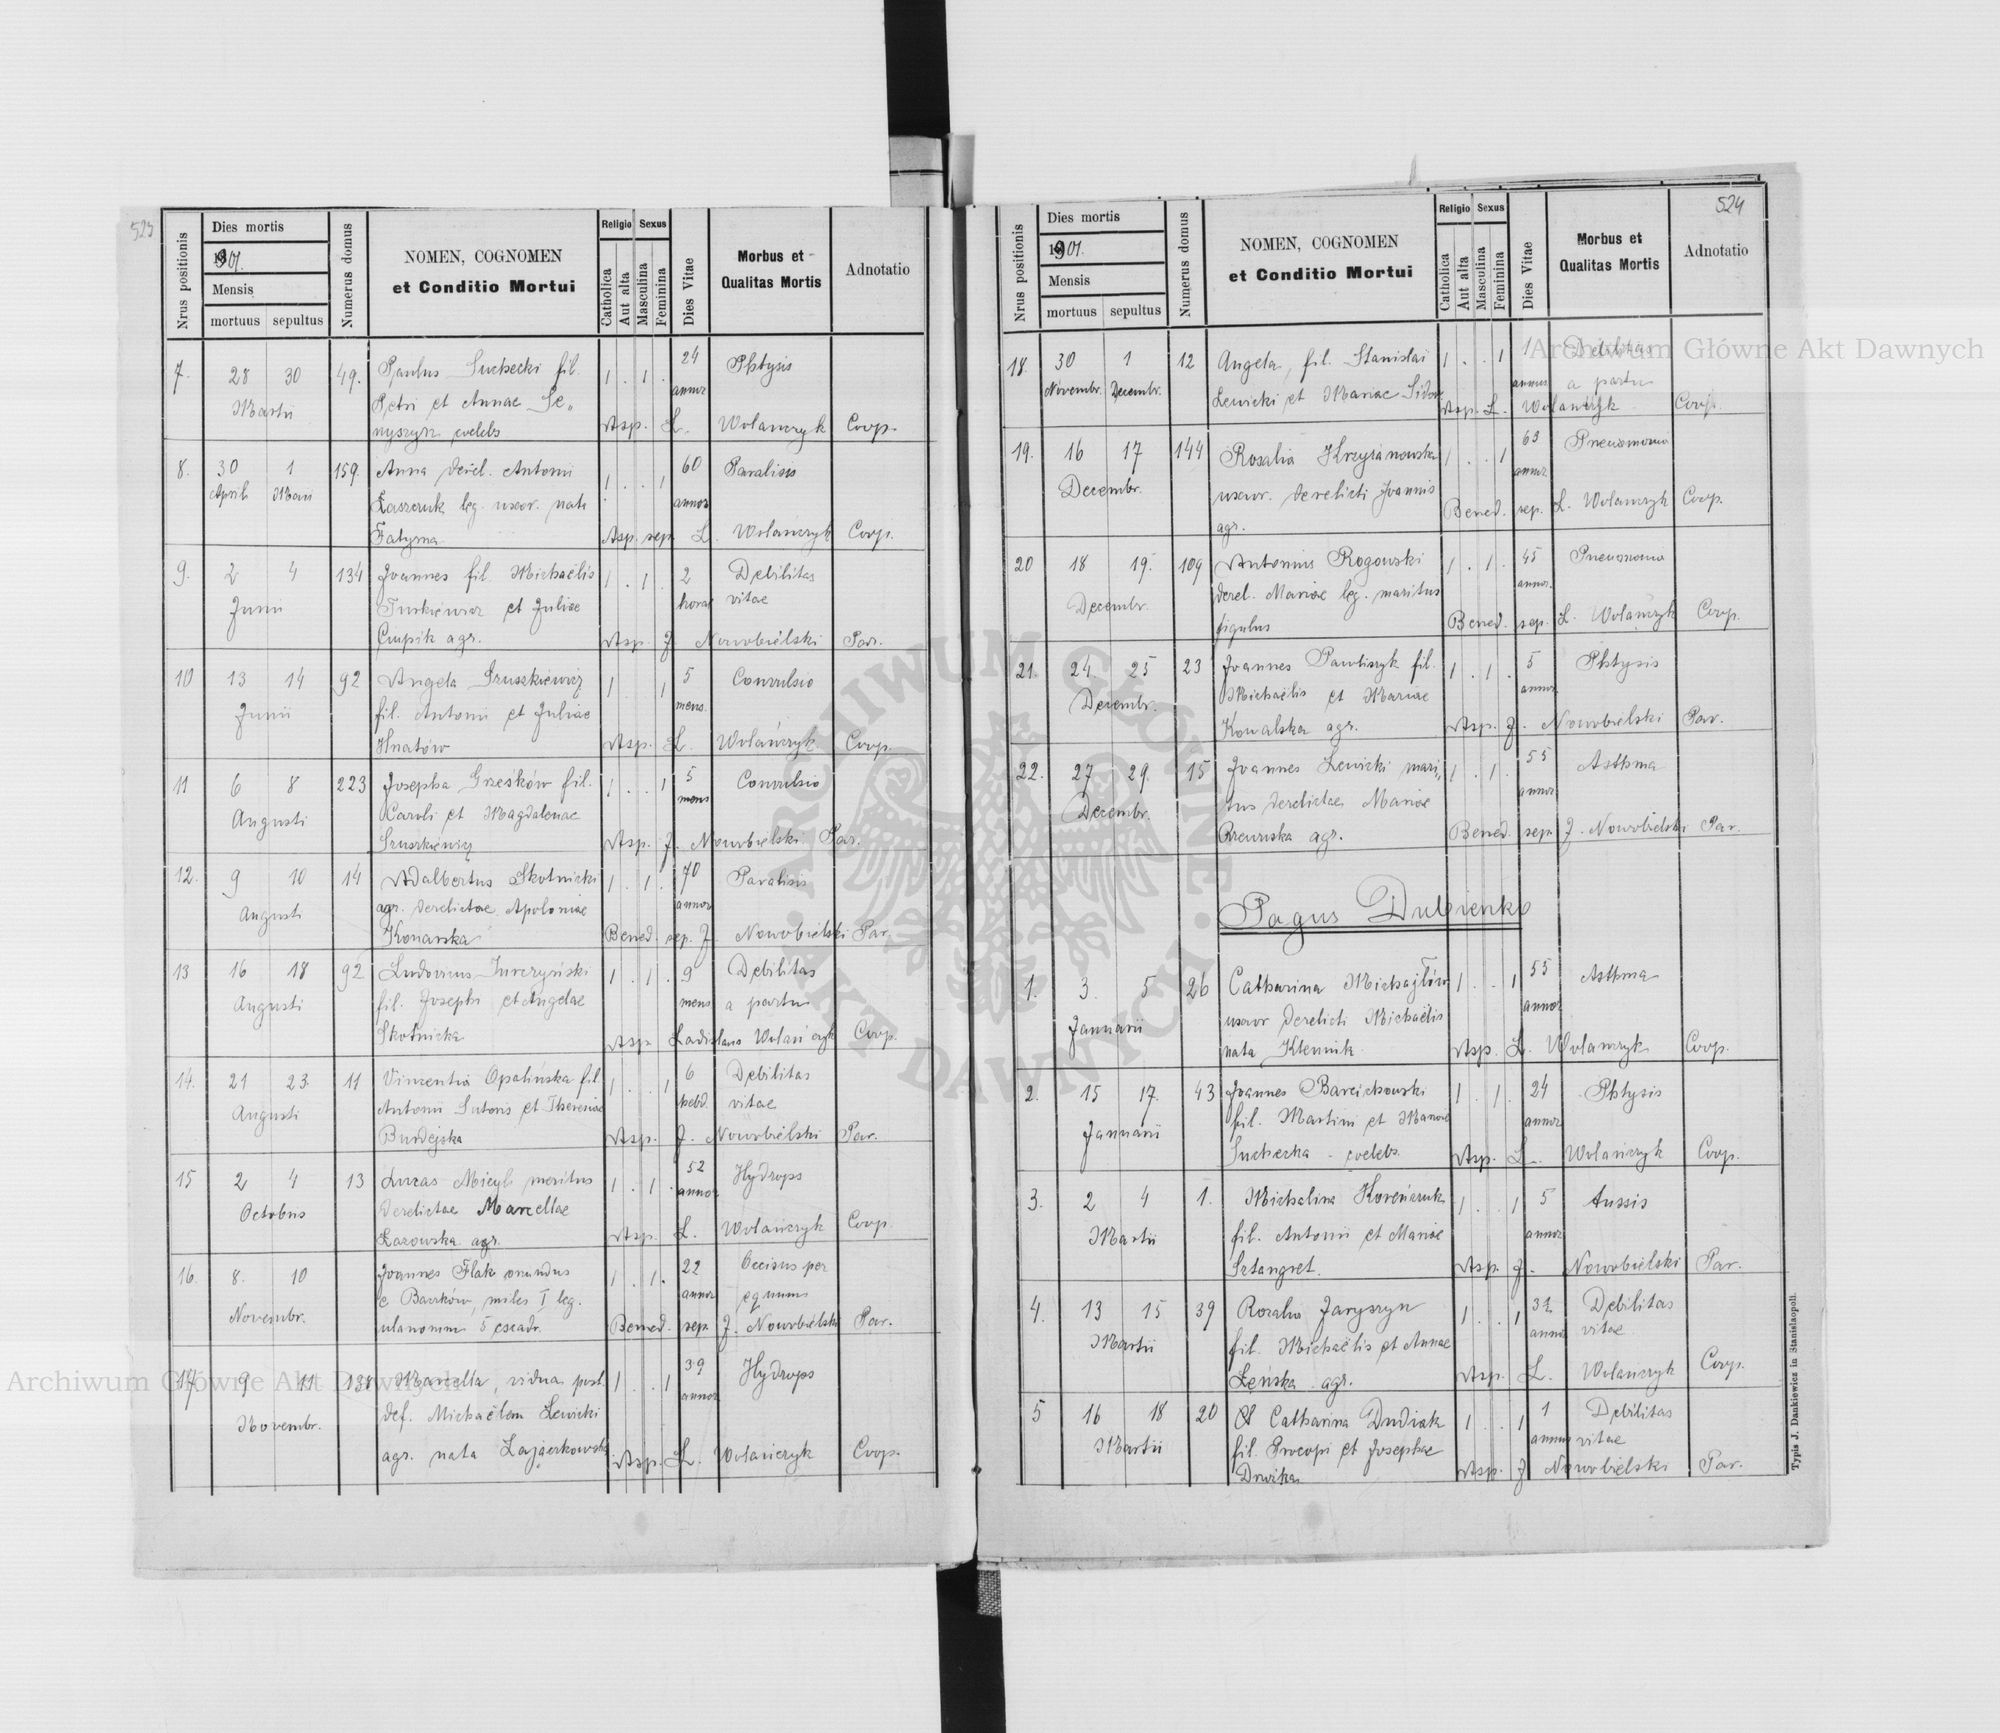 523
Nrus positionis
Dies mortis
1901.
Mensis
mortuus sepultus
Numerus domus
NOMEN, COGNOMEN
et Conditio Mortui
Religio Sexus
Catholica
Aut alta
Masculina
Feminina
Dies Vitae
Morbus et
Qualitas Mortis
Adnotatio
7. 28 30 49. Paulus Suchecki fil. 1 . 1 . 24 Phtysis
Martii Petri et Annae Se„ annor
nyszyn coelebs Asp. L. Wolańczyk Coop.
8. 30 1 159. Anna derel. Antonii 1 . . 1 60 Paralisis
Aprili Maii Łaszczuk leg. uxor. nata annor
Fatyma Asp. sep. L. Wolańczyk Coop.
9. 2 4 134 Joannes fil. Michaëlis 1 . 1 . 2 Debilitas
Junii Turkiewicz et Juliae horae vitae
Ciupik agr. Asp. J. Nowobielski Par.
10 13 14 92 Angela Szuszkiewicz 1 . . 1 5 Convulsio
Junii fil. Antonii et Juliae mens.
Hnatów Asp. L. Wolańczyk Coop.
11 6 8 223 Josepha Grześków fil. 1 . . 1 5 Convulsio
Augusti Caroli et Magdalenae mens
Szuszkiewicz Asp. J. Nowobielski Par.
12. 9 10 14 Adalbertus Skotnicki 1 . 1 . 70 Paralisis
Augusti agr. derelictae Apoloniae annor
Konarska Bened. sep. J. Nowobielski Par.
13 16 18 92 Ludovicus Jurczyński 1 . 1 . 9 Debilitas
Augusti fil. Josephi et Angelae mens a partu
Skotnicka Asp. Ladislaus Wolańczyk Coop.
14. 21 23. 11 Vincentia Opalińska fil. 1 . . 1 6 Debilitas
Augusti Antonii Sutoris et Theresiae hebd. vitae
Burdejska Asp. J. Nowobielski Par.
15 2 4 13 Lucas Micyk maritus 1 . 1 . 52 Hydrops
Octobris derelictae Marcellae annor
Łazowska agr. Asp. L. Wolańczyk Coop.
16. 8. 10 Joannes Flak oriundus 1 . 1 . 22 Occisus per
Novembr. e Barków, miles I leg. annor equum
ulanorum 5 escadr. Bened. sep. J. Nowobielski Par.
17 9 11 138 Marcella, vidua post. 1 . . 1 39 Hydrops
Novembr. def. Michaëlem Lewicki annor
agr. nata Zajączkowska Asp. L. Wolańczyk Coop.
524
Nrus positionis
Dies mortis
1901.
Mensis
mortuus sepultus
Numerus domus
NOMEN, COGNOMEN
et Conditio Mortui
Religio Sexus
Catholica
Aut alta
Masculina
Feminina
Dies Vitae
Morbus et
Qualitas Mortis
Adnotatio
18. 30 1 12 Angela, fil. Stanislai 1 . . 1 1 Debilitas
Novembr. Decembr. Lewicki et Mariae annus a partu
Asp. L. Wolańczyk Coop.
19. 16 17 144 Rosalia Krzyżanowska 1 . . 1 63 Pneumonia
Decembr. uxor. derelicti Joannis annor
agr. Bened. sep. L. Wolańczyk Coop.
20 18 19. 109 Antonius Rogowski 1 . 1 . 45 Pneumonia
Decembr. derel. Mariae leg. maritus annor.
figulus Bened. sep. L. Wolańczyk Coop.
21. 24 25 23 Joannes Pawliszyk fil. 1 . 1 . 5 Phtysis
Decembr. Michaëlis et Mariae annor
Kowalska agr. Asp. J. Nowobielski Par.
22. 27 29. 15 Joannes Lewicki mari„ 1 . 1 . 55 Asthma
Decembr. tus derelictae Mariae annor
agr. Bened. sep. J. Nowobielski Par.
Pagus Dubienko
1. 3. 5 26 Catharina Michajłów 1 . . 1 55 Asthma
Januarii uxor derelicti Michaëlis annor
nata Klemnik Asp. L. Wolańczyk Coop.
2. 15 17. 43 Joannes Barcichowski 1 . 1 . 24 Phtysis
Januarii fil. Martini et Mariae annor
Suchecka - coelebs. Asp. L. Wolańczyk Coop.
3. 2 4 1. Michalina Koreńczuk 1 . . 1 5 tussis
Martii fil. Antonii et Mariae annor
Sztangret. Asp. J. Nowobielski Par.
4. 13 15 39 Rozalia Jaryszyn 1 . . 1 Debilitas
Martii fil. Michaëlis et Annae annor vitae
Leńska agr. Asp. L. Wolańczyk Coop.
5 16 18 20 Catharina Dudiak 1 . . 1 1 Debilitas
Martii fil. Procopi et Josephae annus vitae
Asp. J Nowobielski Par.
Typis J. Dankiewicz in Stanislaopoli.
Archiwum Główne Akt Dawnych
Archiwum Główne Akt Dawnych
ARCHIWUM GŁÓWNE AKT DAWNYCH